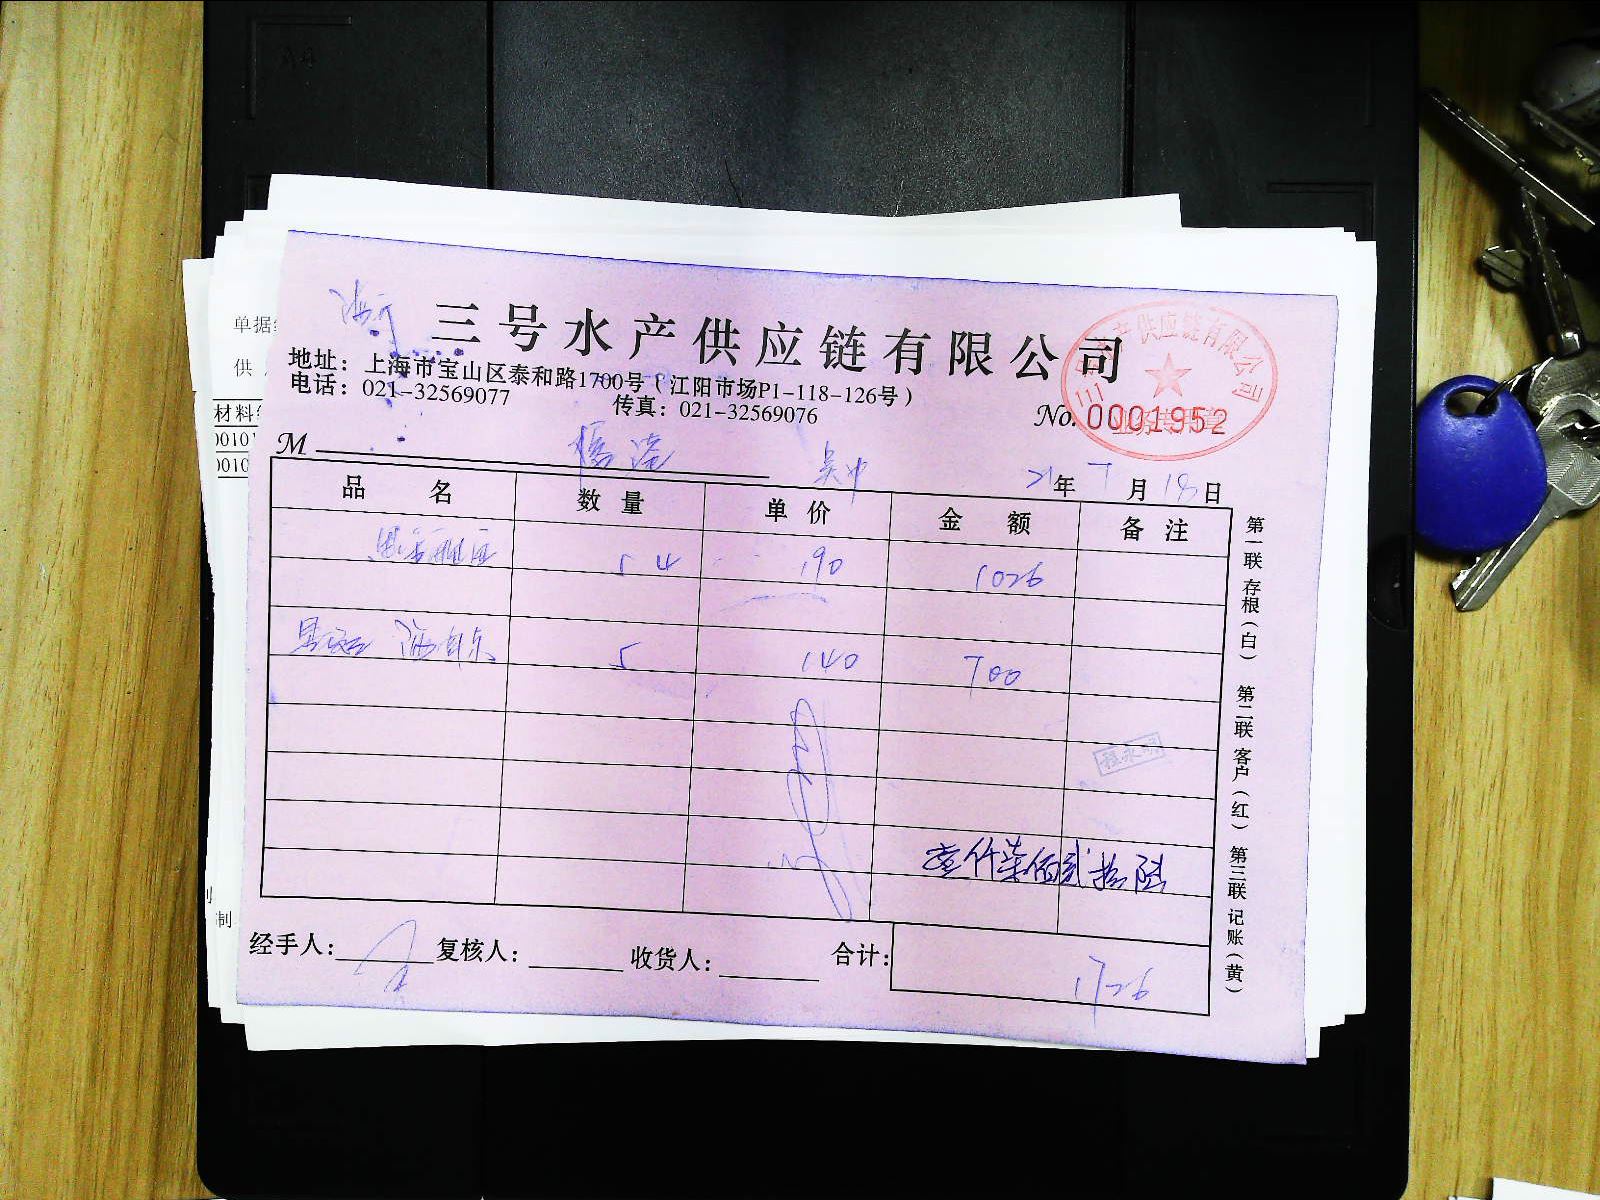 三号水产供应链有限公司
地址：上海市宝山区泰和路1700号（江阳市场P1-118-126号）
电话：021-32569077 传真：021-32569076
No. 0001952
产供应链有限公司
业务专用章
M
21年 7月 18日
品名 数量 单价 金额 备注
54 190 1026
5 140 700
程永明
壹仟柒佰贰拾陆
经手人： 复核人： 收货人： 合计： 1726
第一联 存根（白） 第二联 客户（红） 第三联 记账（黄）
单据
供
材料
00101
0010
制